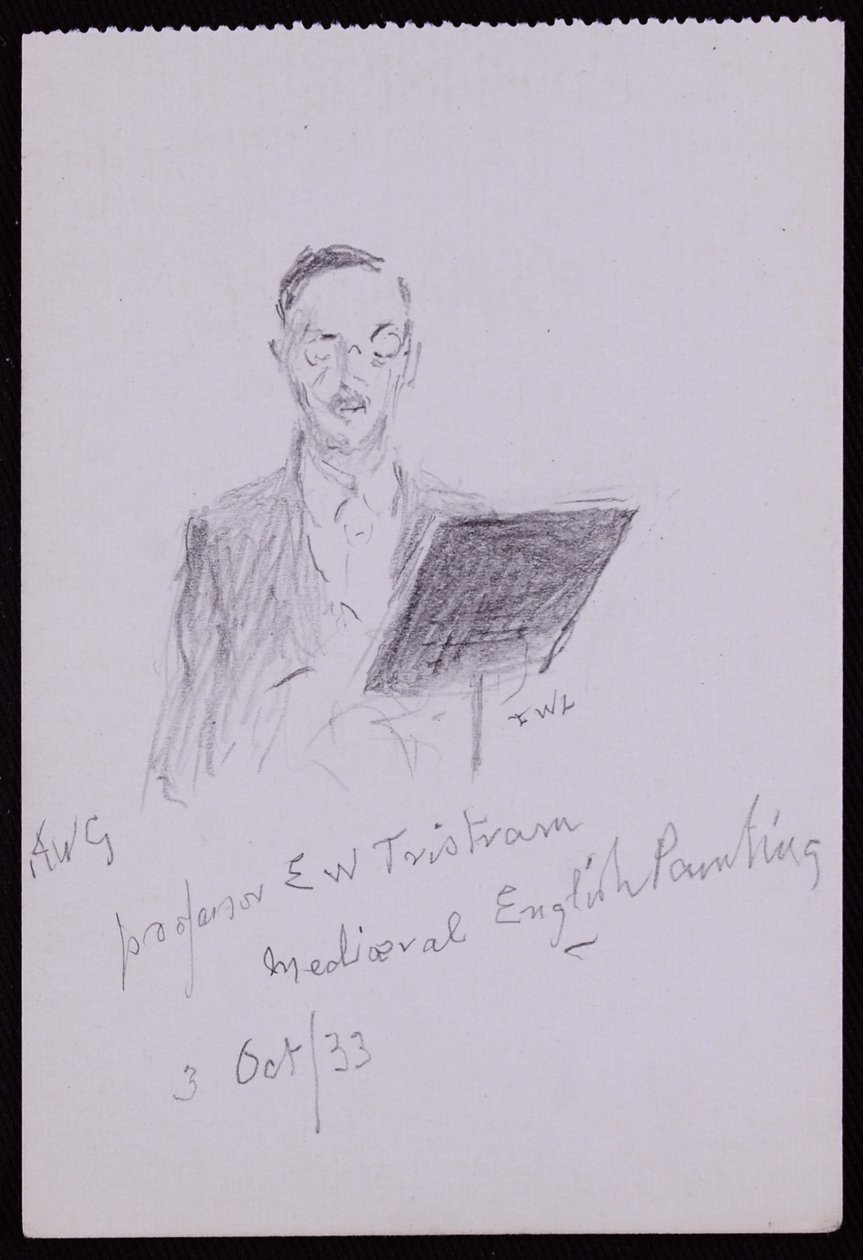 AWG
professor E W Tristram
Mediæval English Painting
3 Oct/33